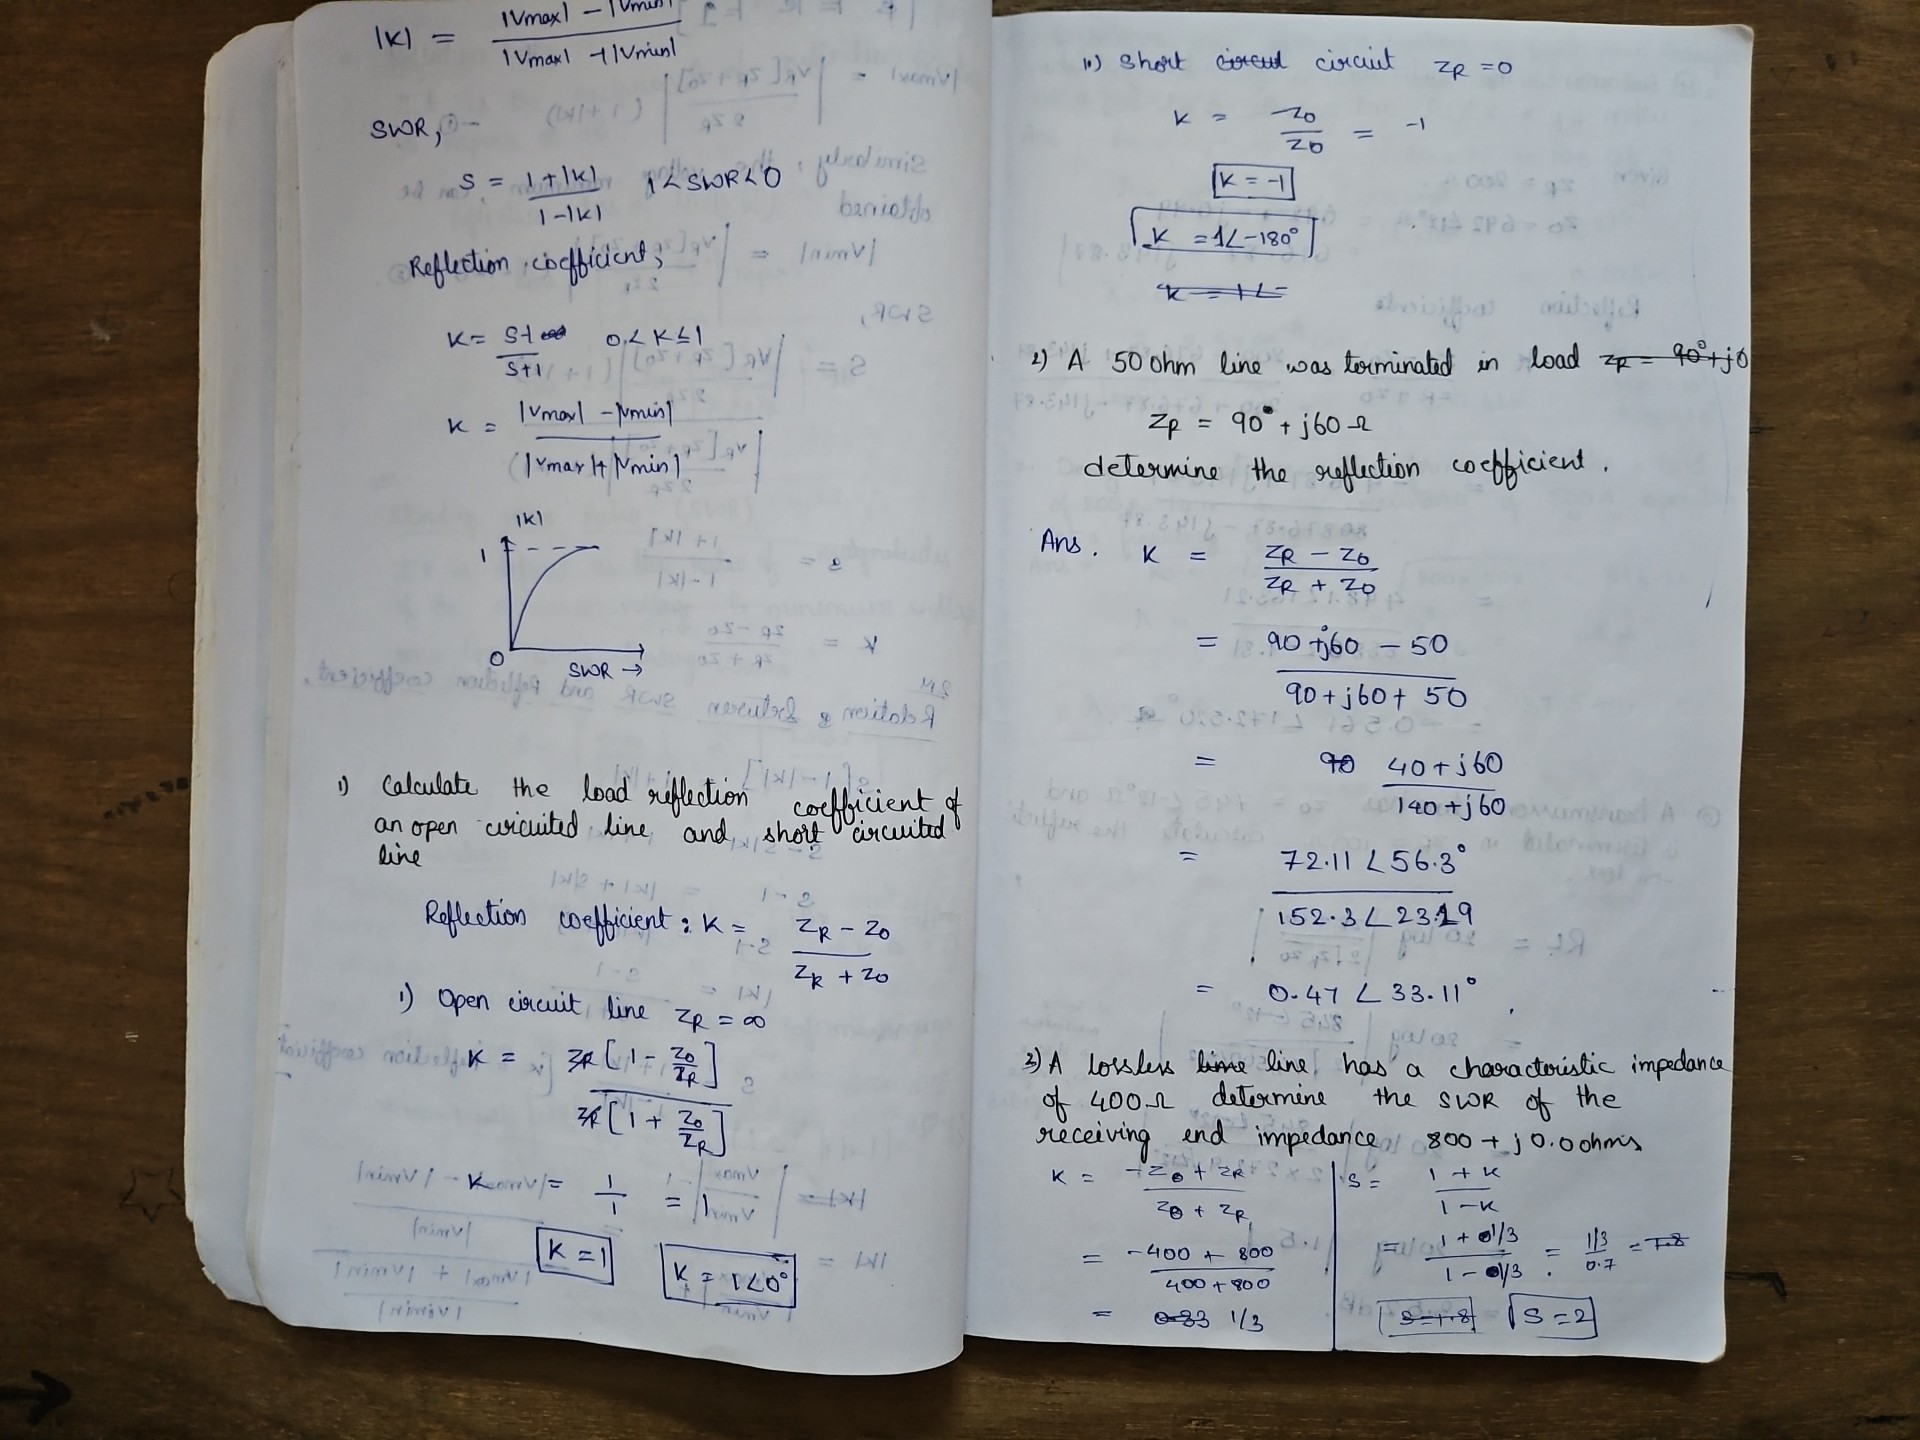 |K| = |Vmax| - |Vmin| / |Vmax| + |Vmin|
SWR,
S = 1+|K| / 1-|K|   1 < SWR < 0
Reflection coefficient,
K = S-1 / S+1   0 < K ≤ 1
K = |Vmax| - |Vmin| / |Vmax| + |Vmin|
|K|
1
0
SWR →
1) Calculate the load reflection coefficient of
an open circuited line and short circuited
line
Reflection coefficient : K = ZR - Z0 / ZR + Z0
i) Open circuit line ZR = ∞
K = ZR [1 - Z0/ZR] / ZR [1 + Z0/ZR]
K = 1/1 = 1
K = 1
K = 1∠0°
ii) Short circuit circuit ZR = 0
K = -Z0 / Z0 = -1
K = -1
K = 1∠-180°
K = 1∠-
2) A 50 ohm line was terminated in load ZR = 90°+j6
ZR = 90° + j60 Ω
determine the reflection coefficient.
Ans. K = ZR - Z0 / ZR + Z0
= 90 + j60 - 50 / 90 + j60 + 50
= 90 40 + j60 / 140 + j60
= 72.11 ∠56.3° / 152.3 ∠ 23.19
= 0.47 ∠ 33.11°
3) A lossless lime line has a characteristic impedance
of 400Ω determine the SWR of the
receiving end impedance 800 + j0.0 ohms
K = -Z0 + ZR / Z0 + ZR
= -400 + 800 / 400 + 800
= 0.33 1/3
S = 1 + K / 1 - K
= 1 + 1/3 / 1 - 1/3 = 1/3 / 0.7 = 1.8
S = 1.8 S = 2